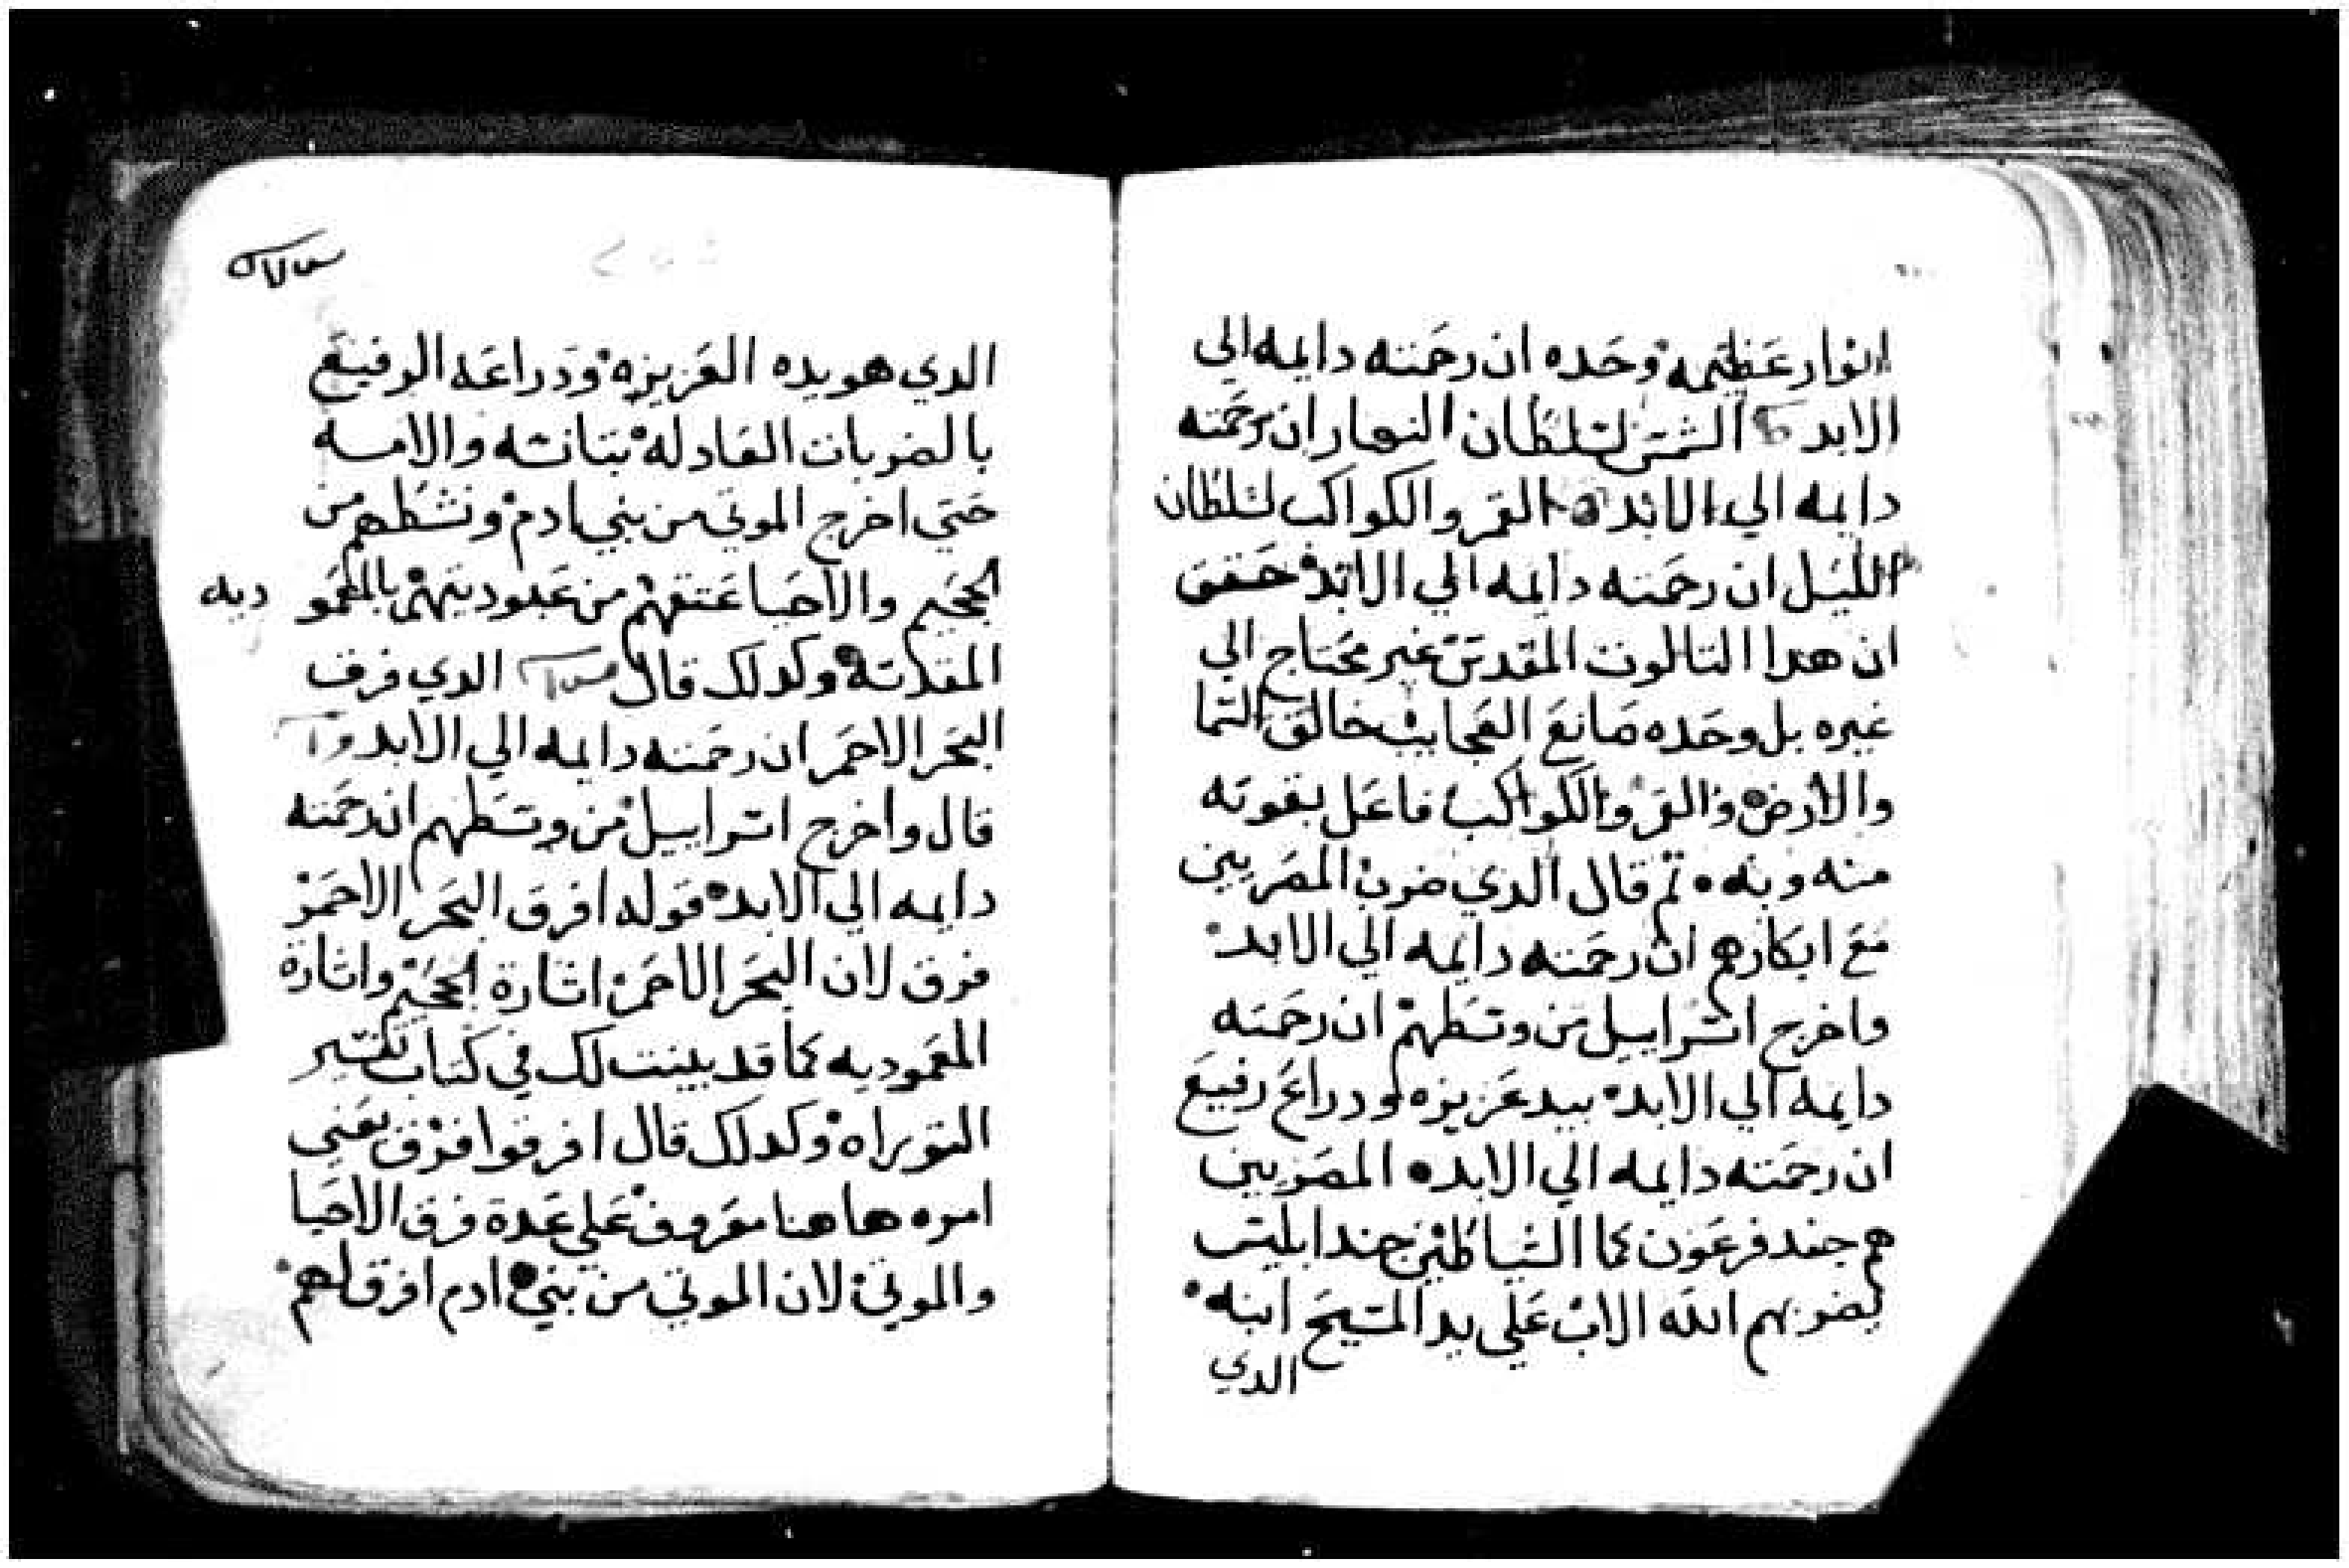 انوار عظيمه وحده ان رحمته دايمه الي
الابد الشمس لسلطان النهار ان رحمته
دايمه الي الابد القمر والكواكب لسلطان
الليل ان رحمته دايمه الي الابد حقق
ان هدا التالوت المقدس غير محتاج الي
غيره بل وحده صانع العجايب خالق السما
والارض والقمر والكواكب فاعل بقوته
منه وبه تم قال الدي ضرب المصريين
مع ابكارهم ان رحمته دايمه الي الابد
واخرج اسراييل من وسطهم ان رحمته
دايمه الي الابد بيد عزيزه ودراع رفيع
ان رحمته دايمه الي الابد المصريين
هم جند فرعون كما الشياطين جند ابليس
يضربهم الله الاب علي يد المسيح ابنه
الدي
الدي هو يده العزيزه ودراعه الرفيع
بالضربات العادله والامه
حتي اخرج الموتي من بني ادم ونشطهم من
الجحيم والاحيا عتقهم من عبوديتهم بالمعمو ديه
المقدسه وكدلك قال الدي فرق
البحر الاحمر ان رحمته دايمه الي الابد
قال واخرج اسراييل من وسطهم ان رحمته
دايمه الي الابد قوله افرق البحر الاحمر
فرق لان البحر الاحمر اشارة الجحيم واشارة
المعموديه كما قد بينت لك في كتاب تفسير
التوراه وكدلك قال افرقوا فرق يعني
امره هاهنا معروف علي عدة فرق الاحيا
والموتي لان الموتي من بني ادم افرق لهم